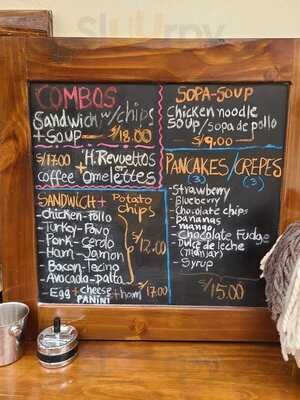 COMBOS
Sandwich w/chips
+ Soup S/18.00
S/17.00 + H. Revueltos
en
coffee Omelettes
SANDWICH +
Potato
chips
- Chicken - Pollo
- Turkey - Pavo
- Pork - Cerdo
- Ham - Jamon
- Bacon - Tocino
- Avocado - Palta
S/12.00
- Egg + cheese + ham S/17.00
PANINI
SOPA - SOUP
Chicken noodle
Soup / sopa de pollo
S/9.00
PANCAKES / CREPES
(3) (3)
- Strawberry
- Blueberry
- Chocolate chips
- bananas
- mango
- Chocolate Fudge
- Dulce de leche
(manjar)
- Syrup
S/15.00